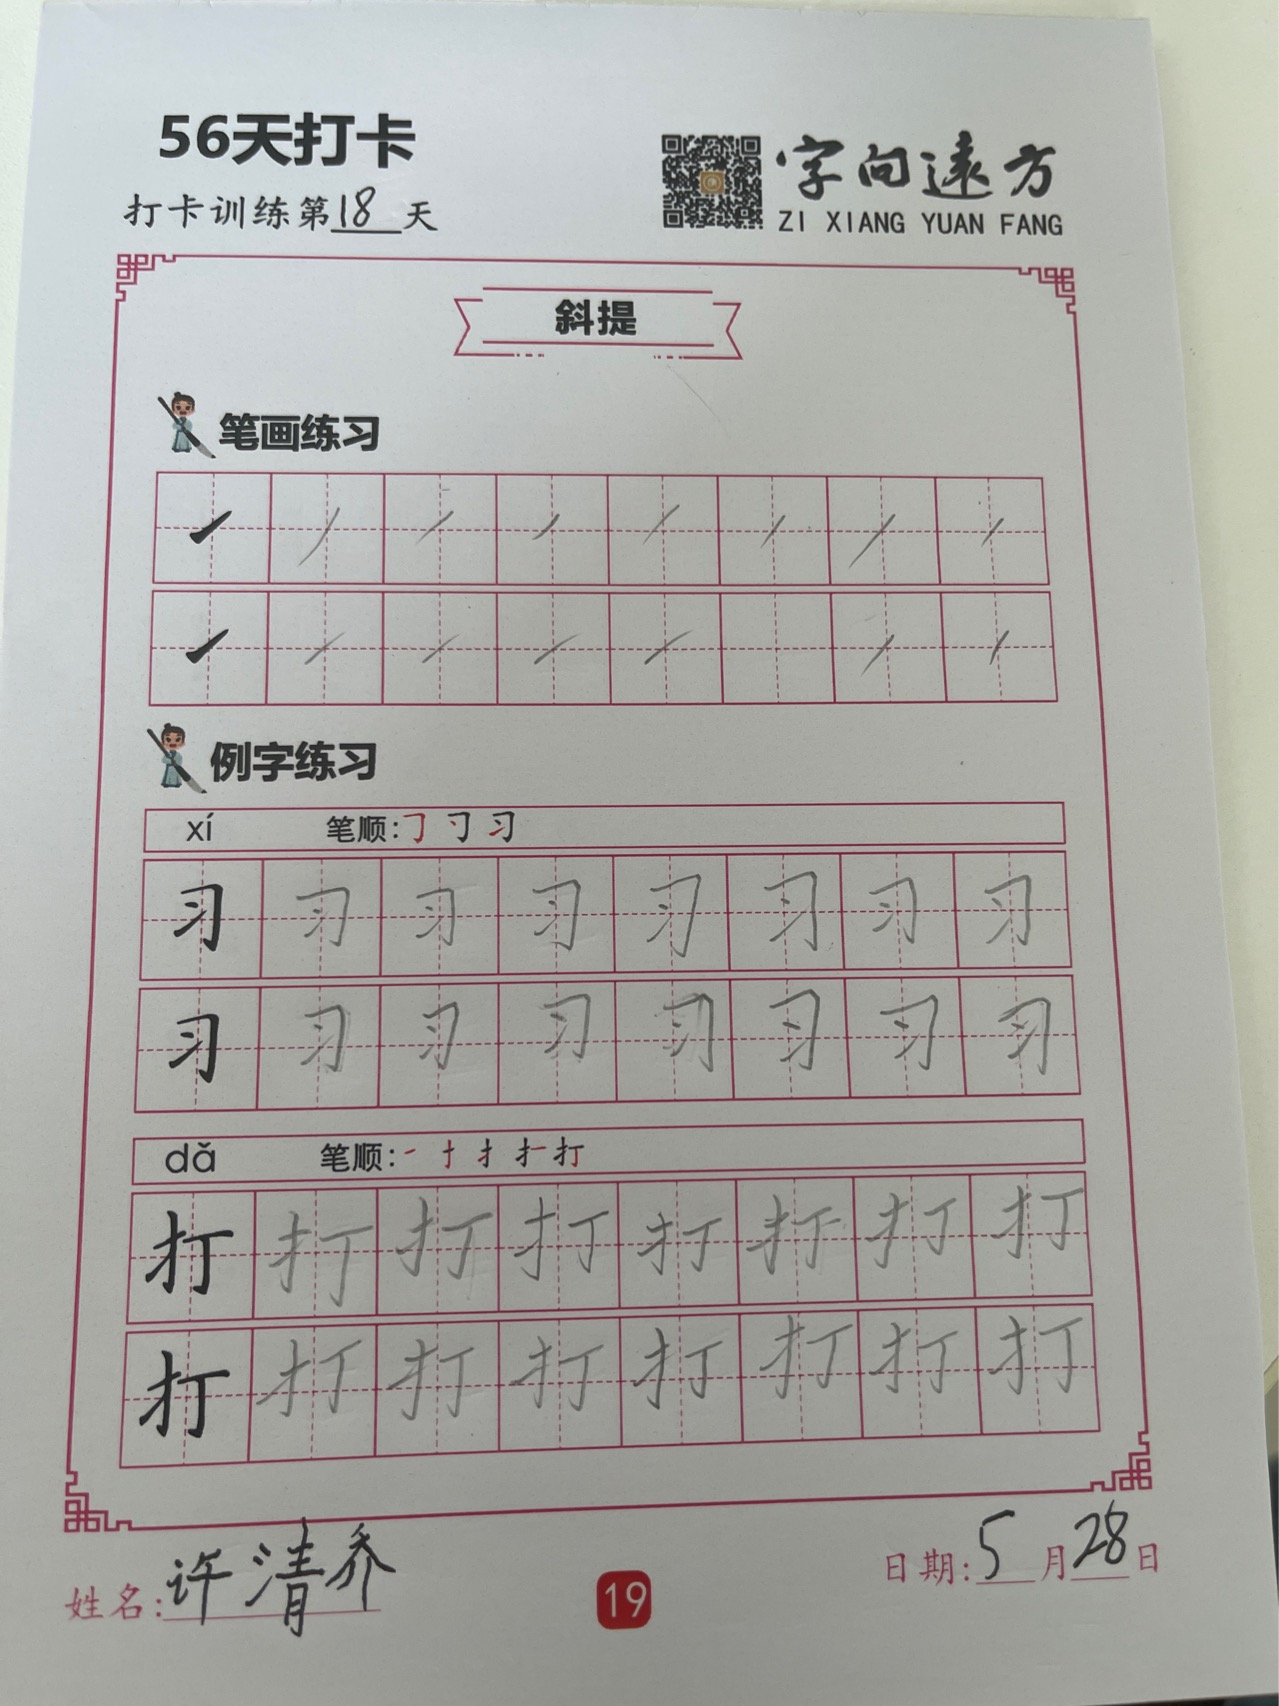 56天打卡
打卡训练第18天
字向遠方
ZI XIANG YUAN FANG
斜提
笔画练习
例字练习
xí 笔顺:㇆ 习
习 习 习 习 习 习 习 习
习 习 习 习 习 习 习 习
dǎ 笔顺:一 扌 打
打 打 打 打 打 打 打 打
打 打 打 打 打 打 打 打
姓名:许清乔
日期:5月28日
19